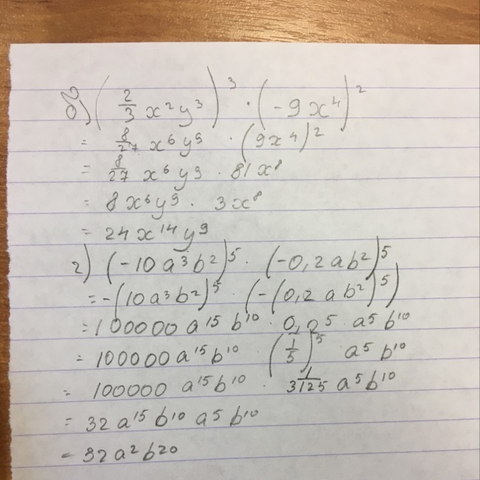 б) (2/3 x²y³)³ · (-9x⁴)²
= 8/27 x⁶y⁹ · (9x⁴)²
= 8/27 x⁶y⁹ · 81x⁸
= 8x⁶y⁹ · 3x⁸
= 24x¹⁴y⁹
2) (-10a³b²)⁵ · (-0,2ab²)⁵
= -(10a³b²)⁵ · (-(0,2ab²)⁵)
= 100000a¹⁵b¹⁰ · 0,2⁵ a⁵b¹⁰
= 100000a¹⁵b¹⁰ · (1/5)⁵ a⁵b¹⁰
= 100000a¹⁵b¹⁰ · 1/3125 a⁵b¹⁰
= 32a¹⁵b¹⁰a⁵b¹⁰
= 32a²b²⁰